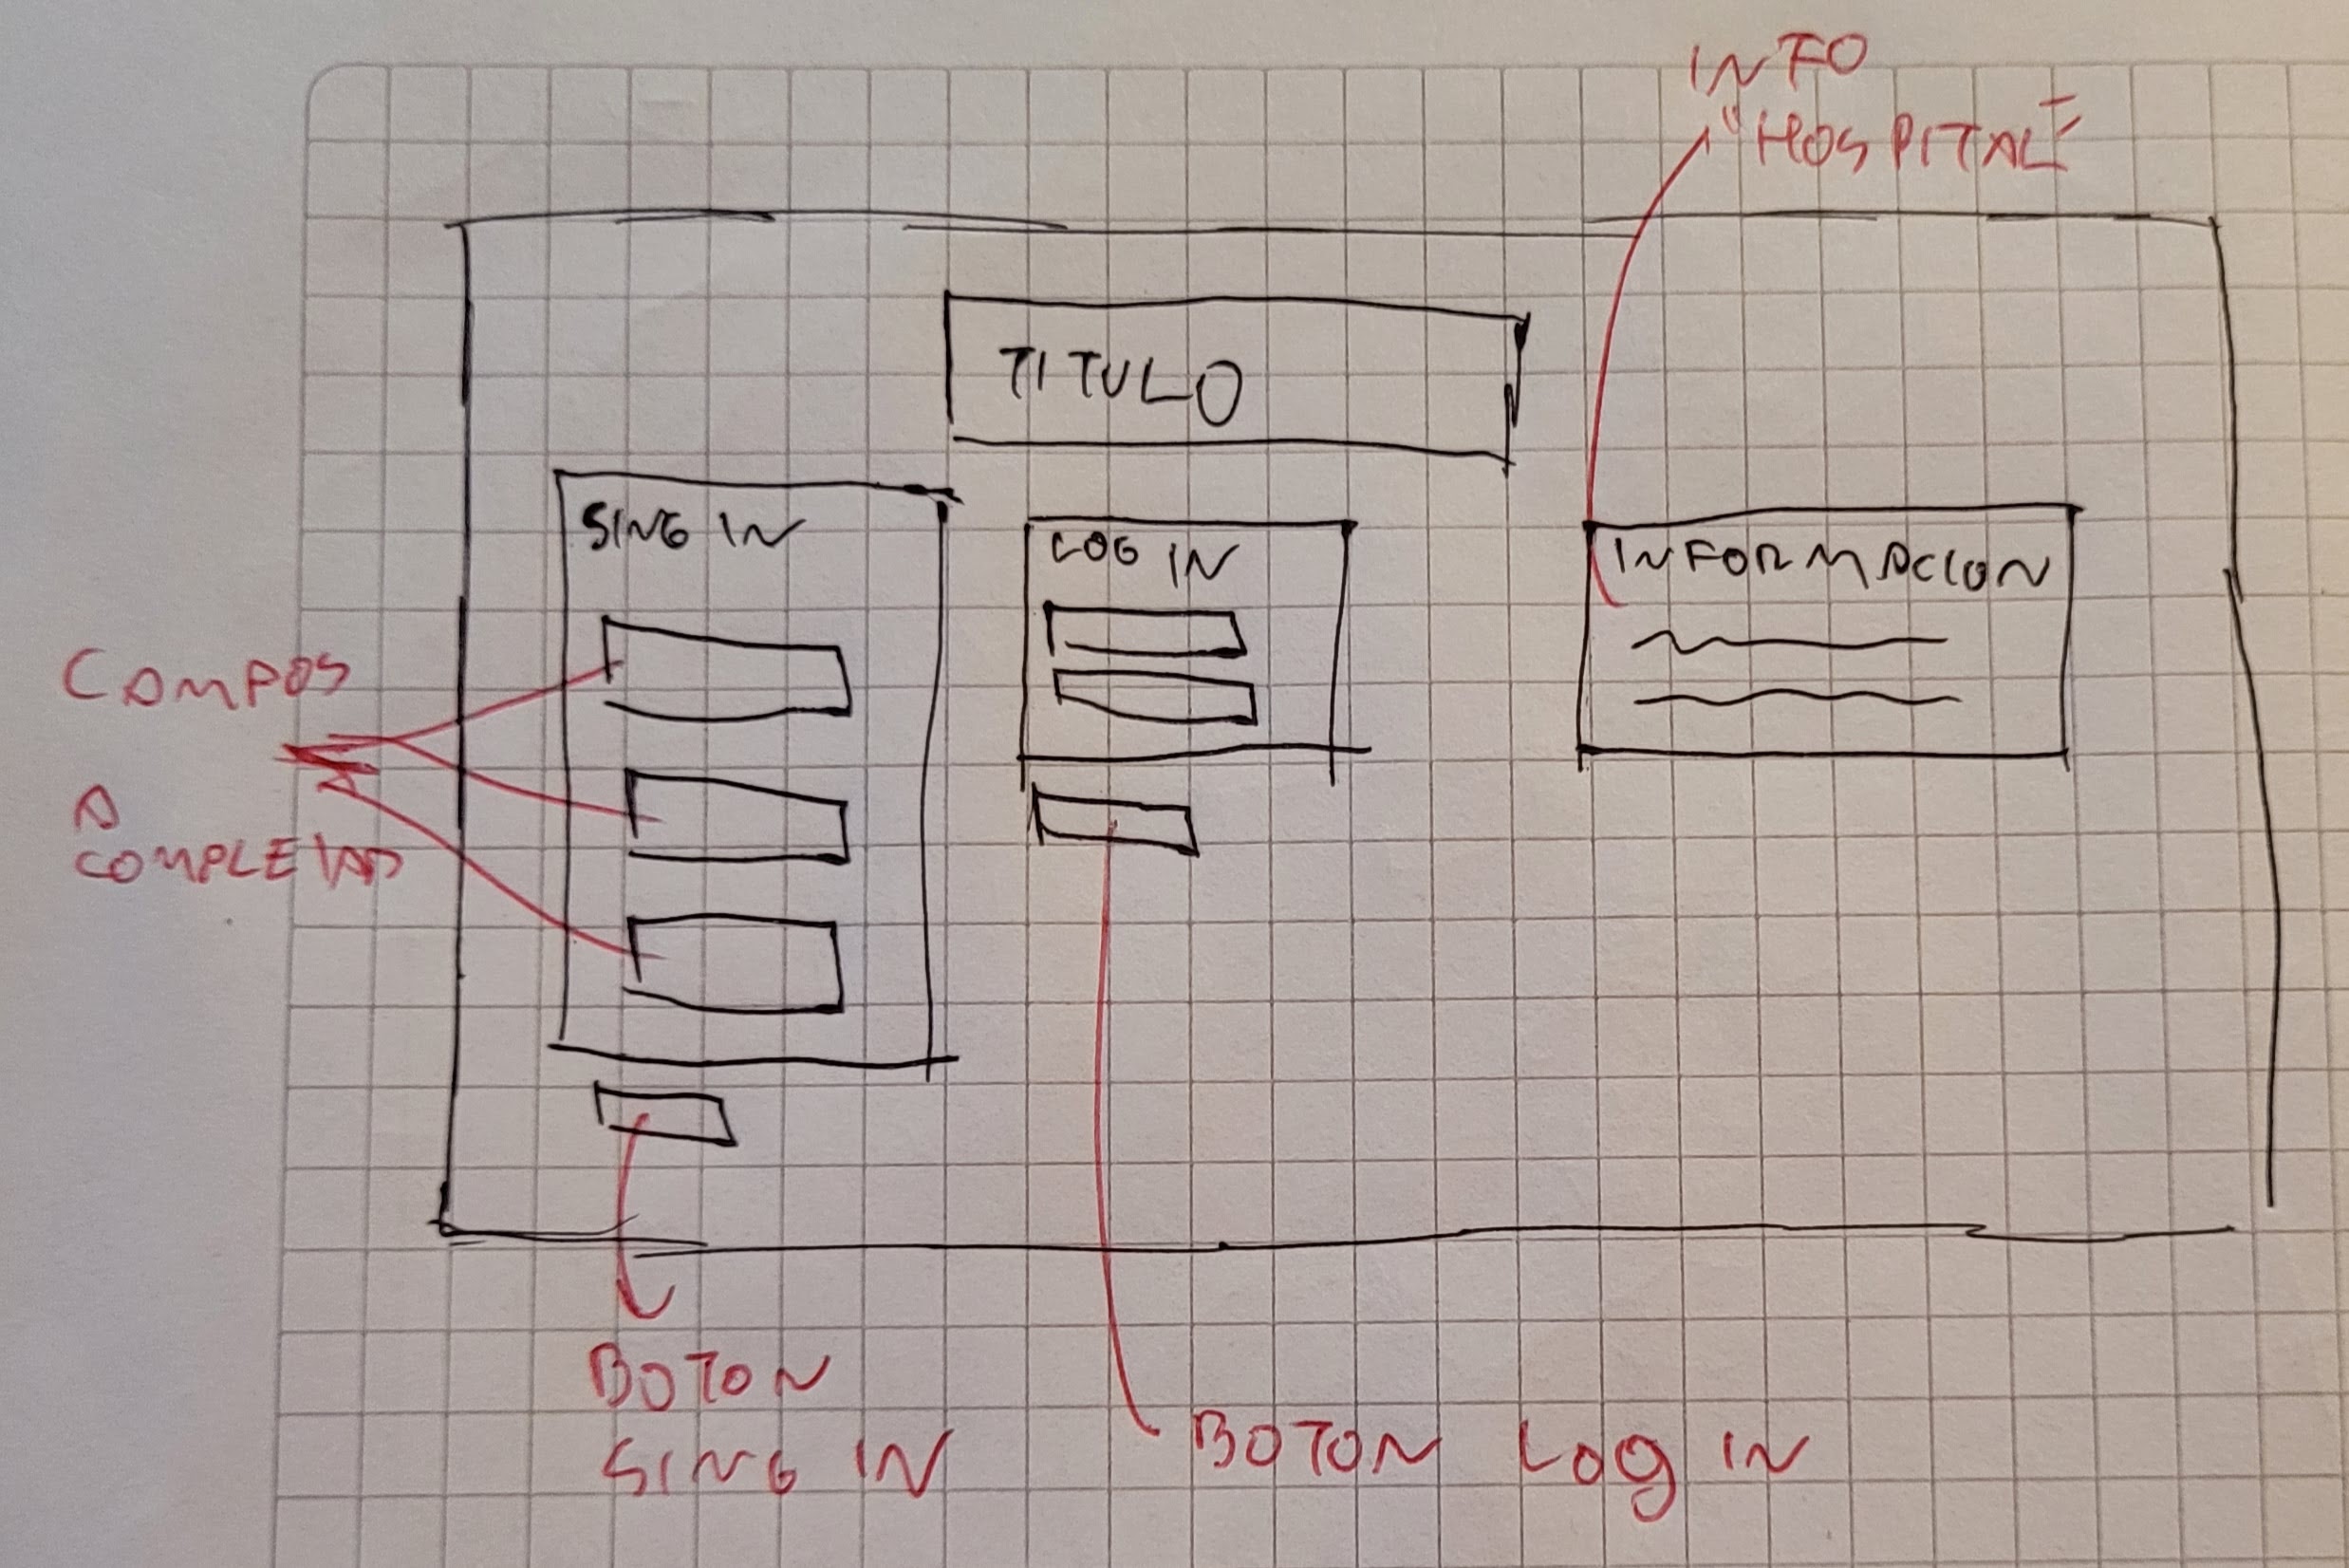 INFO
"HOSPITAL"
TITULO
SING IN
LOG IN
INFORMACION
CAMPOS
A
COMPLETAR
BOTON
SING IN
BOTON LOG IN